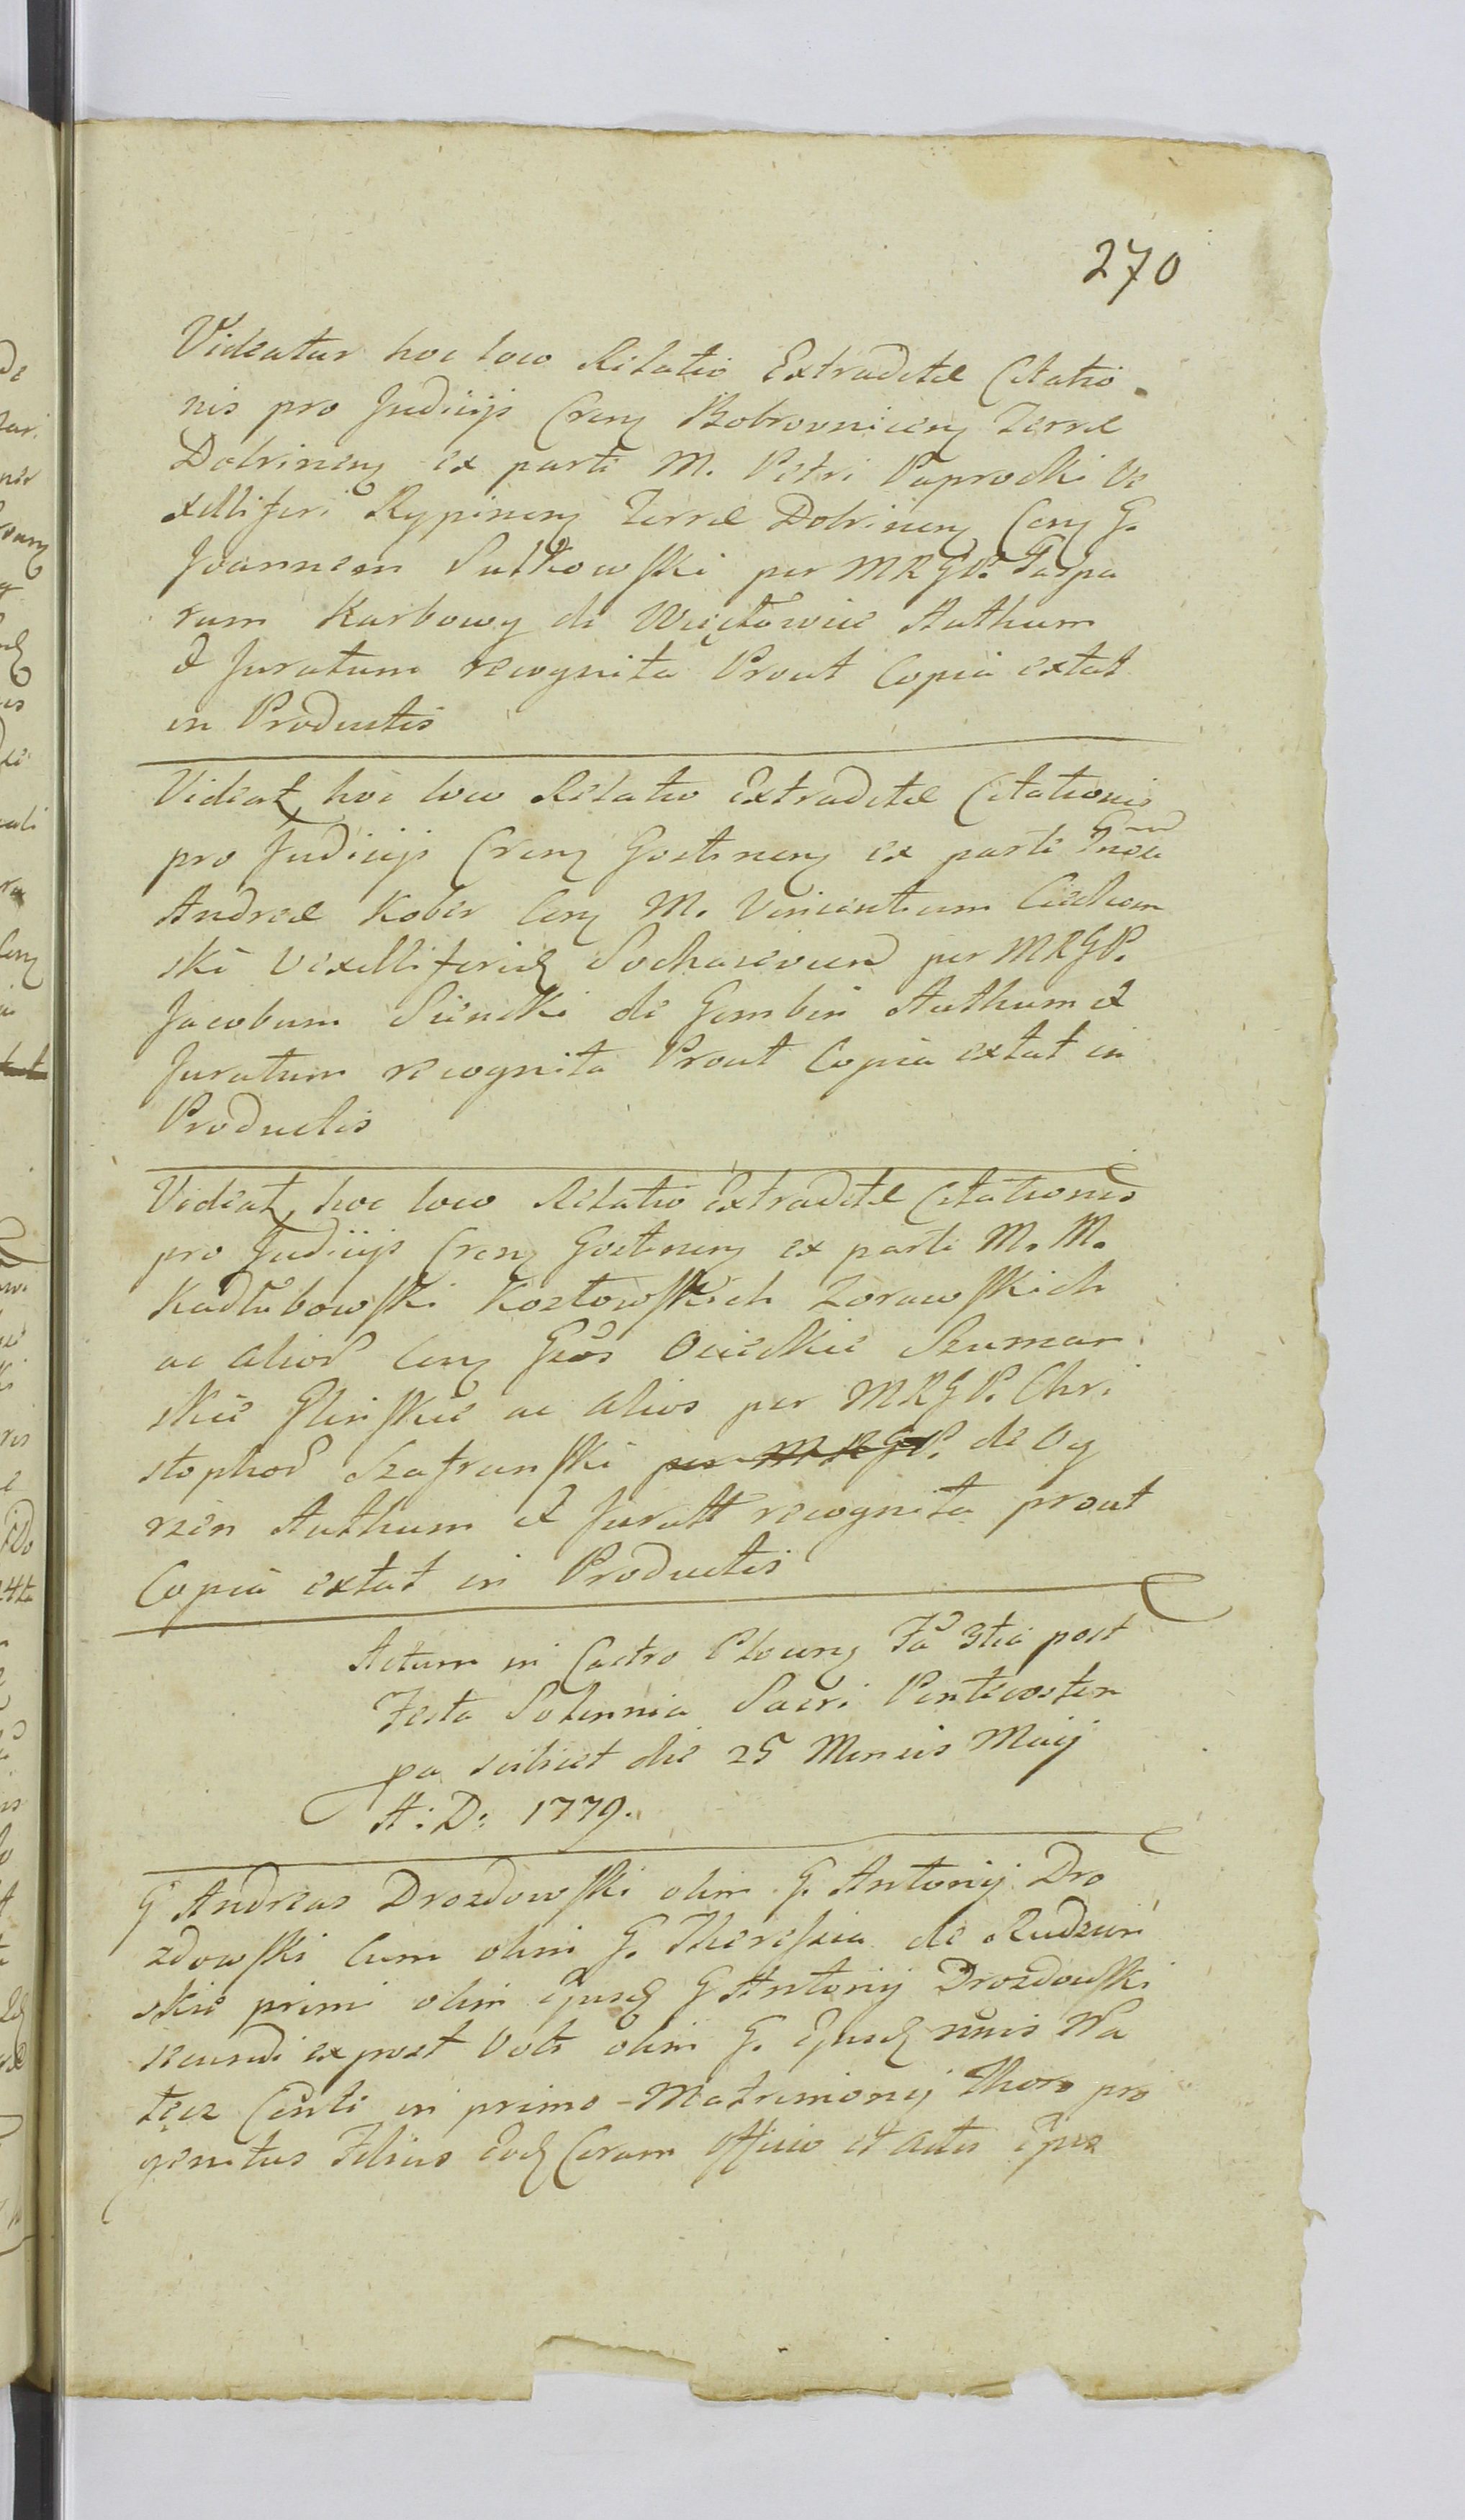 270
Videatur hoc loco Relatio Extraditæ Citatio
nis pro Judicijs Cren̄ Bobrovnicen̄ Terræ
Dobrinen̄ ex parte M. Petri Paprocki Ve
xilliferi Rypinen̄ Terræ Dobrinen̄ Con̄ G.
Joannem Sutkowski per MRGP. Gaspa
rum Karbowy de Authum
& Juratum recognita Prout Copia extat
in Productis
Videat hoc loco Relatio Extraditæ Citationis
pro Judicijs Cren̄ Gostinen̄ ex parte
Andreæ Kober Con̄ M. Vincentium Ciechom
ski Vexilliferid Sochacevien per MRGP.
Jacobum Sieneki de Gombin Authum &
Juratum recognita Prout Copia extat in
Productis
Videat hoc loco Relatio Extraditæ Citationis
pro Judicijs Cren̄ Gostinen̄ ex parte M. M.
Kadłubowski Kozłowskich Zorawskich
ac alior Con̄ Gēos Osieckie Szuman
skie Glinskie ac alios per MRGP. Chri
stophor Szafranski per MRGP. de Og
rzen Authum et Juratt recognita prout
Copia extat in Productis
Actum in Castro Plocen̄ Fa 3tia post
Festa Solennia Sacri Pentecosten
pa scilicet die 25 Mensis Maij
A: D: 1779.
G Andreas Drozdowski olim G. Antonij Dro
zdowski cum olim G. Theressia de Rudzin
skie primi olim Ejusd G Antonij Drozdowski
secundi expost Voti olim G. Ejusd Wa
in primo Matrimonij Thoro pro
genitus Filius Eod Coram Officio et Actis